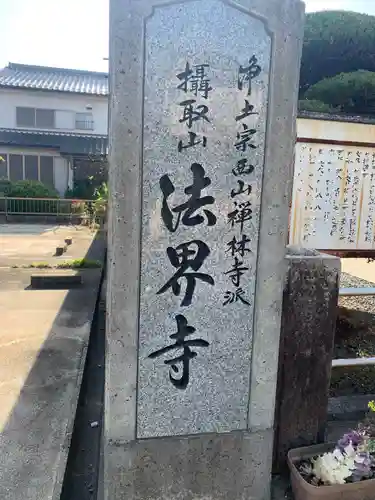 浄土宗西山禅林寺派
攝取山
法界寺